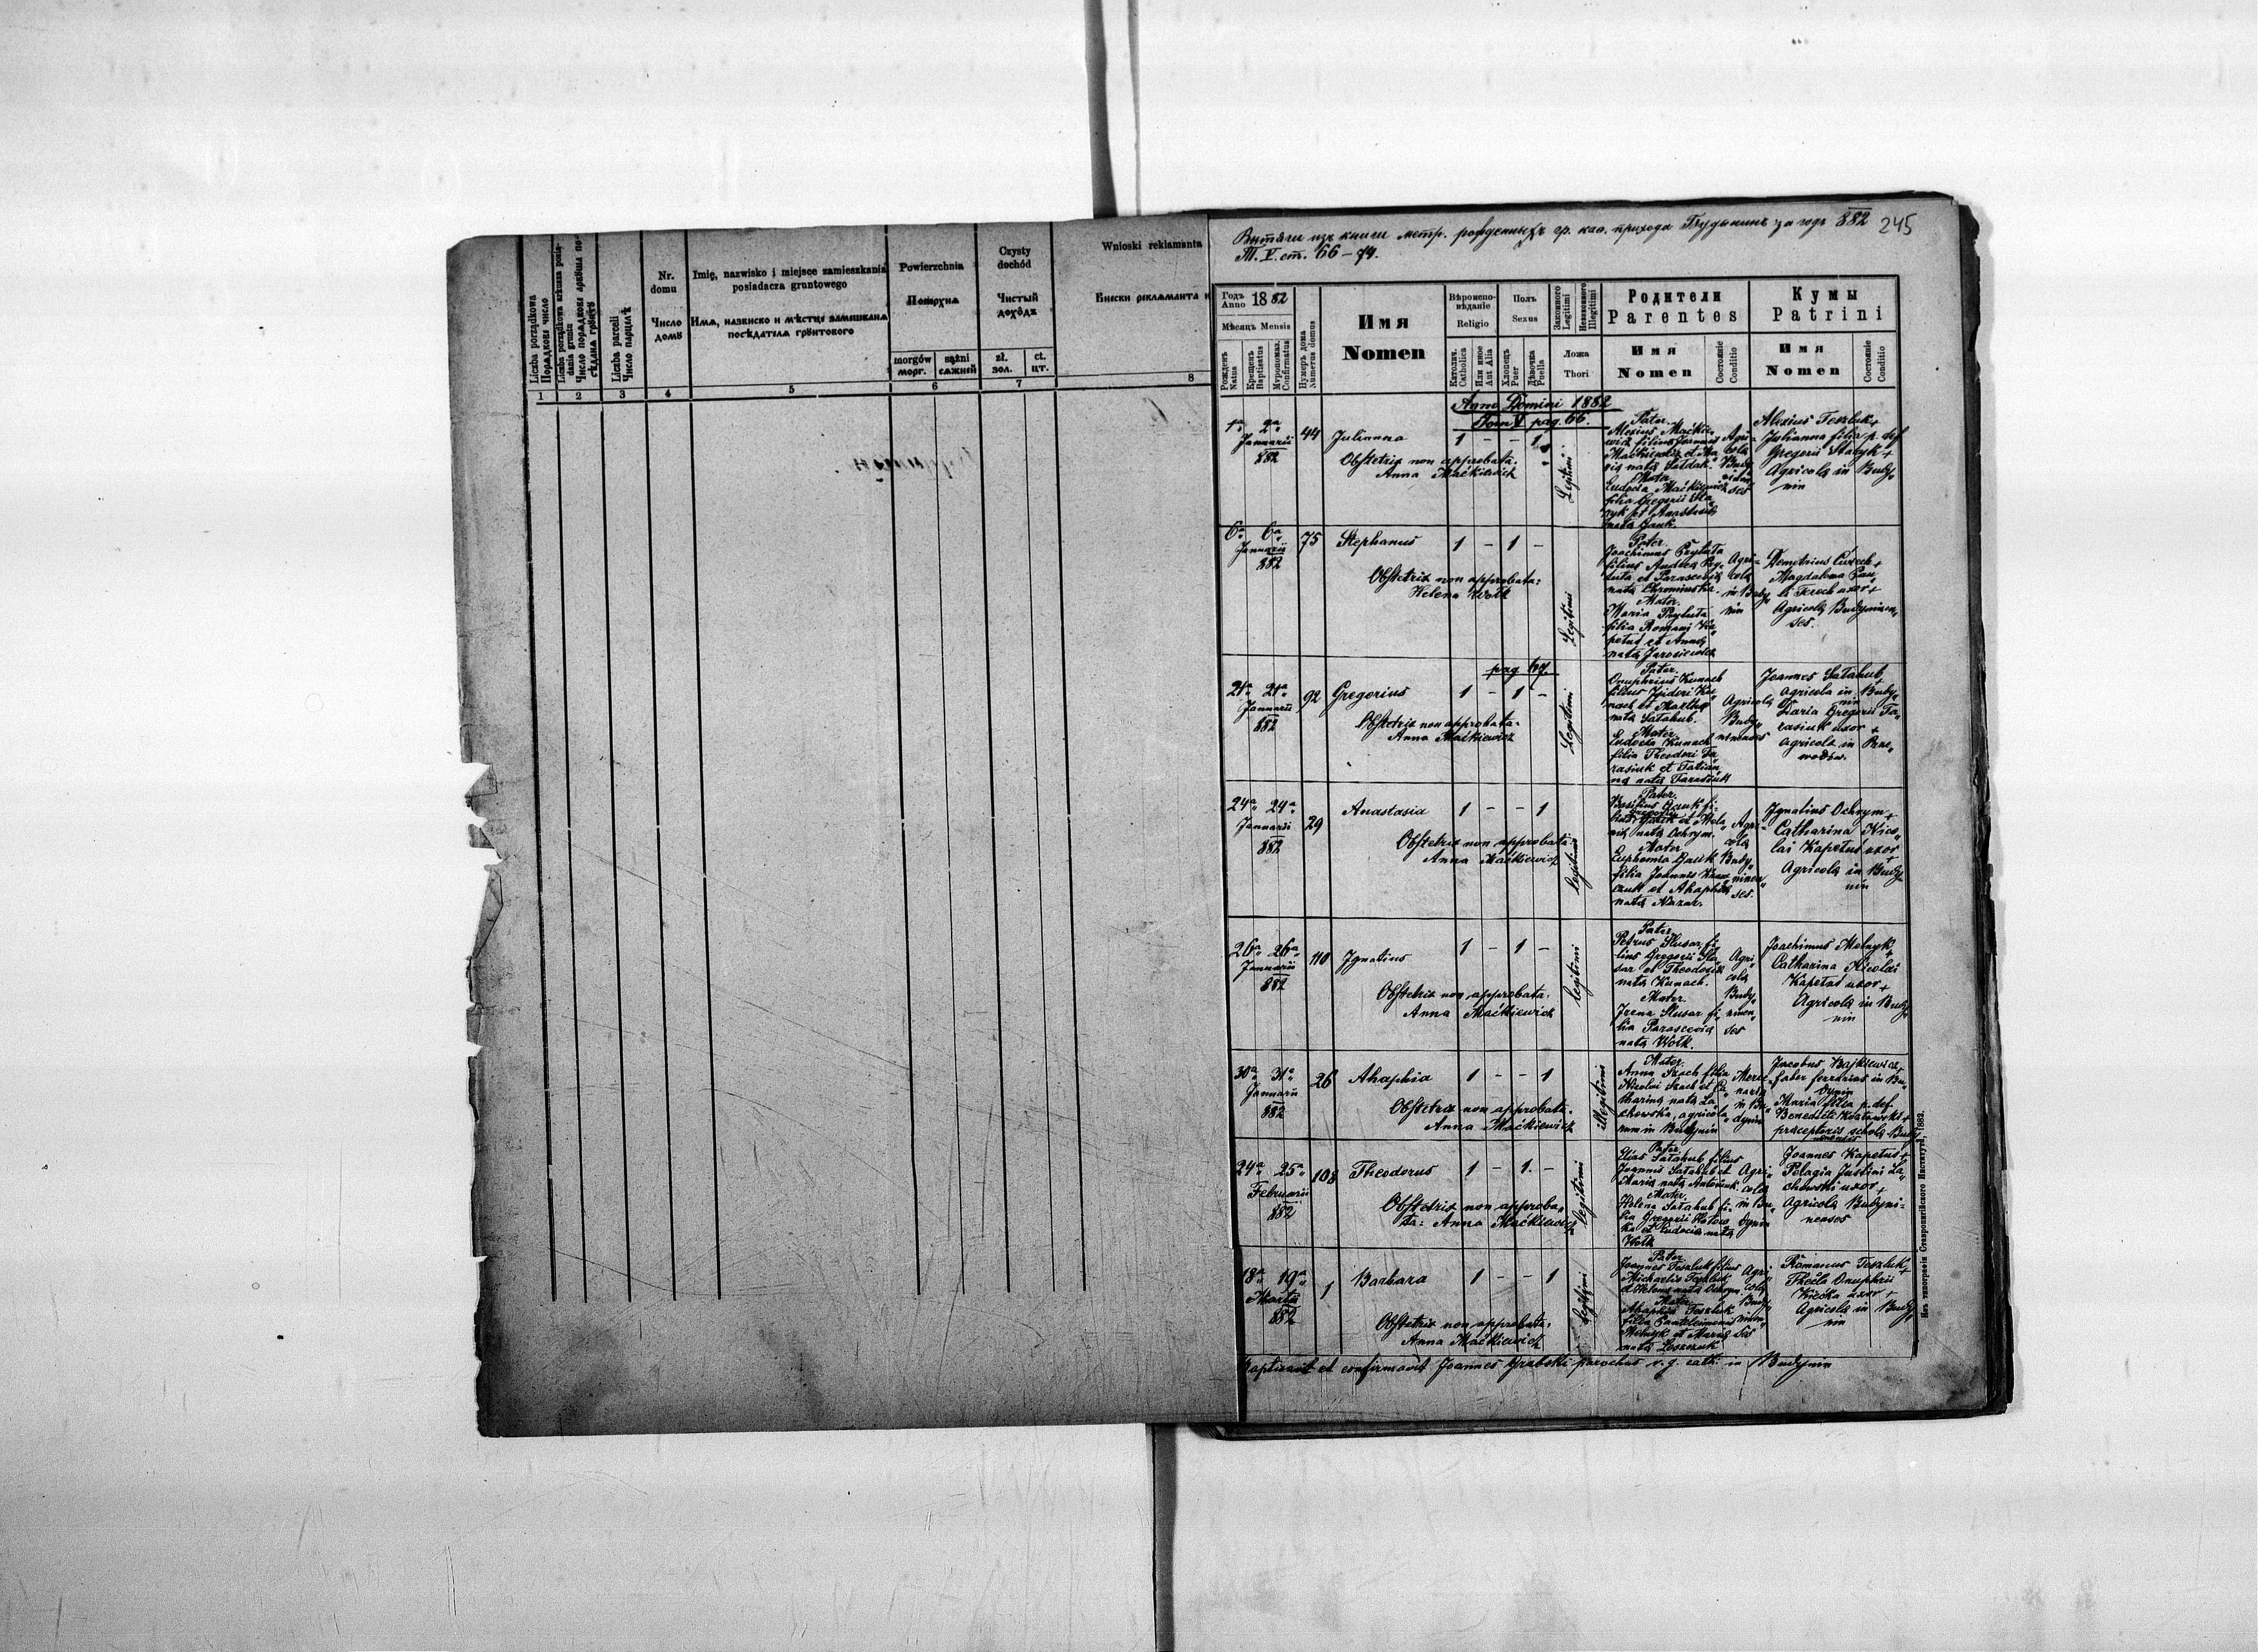 Liczba porządkowa
Порядкове число
Liczba porządkowa arkusza posia-
dania gruntu
Число порядкове аркѹша по-
сѣданя грѹнтѹ
Liczba parceli
Число парцелѣ
Nr.
domu
Число
домѹ
Imię, nazwisko i miejsce zamieszkania
posiadacza gruntowego
Имя, назвиско и мѣстце замешканя
посѣдатѣля грѹнтового
Powierzchnia
Поверхня
morgów
морг.
sążni
сяжней
Czysty
dochód
Чистый
доходъ
zł.
зол.
ct.
цт.
Wnioski reklamanta
Внески рекляманта и
1 2 3 4 5 6 7 8
Вытяги изъ книги метр. рожденныхъ гр. каѳ. прихода Будынинъ за годъ 882 245
Т. V. ст. 66–74.
Годъ
Anno 1882
Мѣсяцъ Mensis
Рожденъ
Natus
Крещенъ
Baptisatus
Мѵропомаз.
Confirmatus
Нумеръ дома
Numerus domus
Имя
Nomen
Вѣроиспо-
вѣданіе
Religio
Католич.
Catholica
Или иное
Aut Alia
Полъ
Sexus
Хлопецъ
Puer
Дѣвочка
Puella
Законного
Legitimi
Незаконного
Illegitimi
Ложа
Thori
Родители
Parentes
Имя
Nomen
Состояніе
Conditio
Кумы
Patrini
Имя
Nomen
Состояніе
Conditio
Anno Domini 1882
Tom V pag. 66.
1a 2a
Januarii
882
44
Julianna
1 – – 1
Obstetrix non approbata:
Anna Maćkiewicz
Legitimi
Pater.
Alexius Maćkie-
wicz filius Joannis
Maćkiewicz et Ma
riæ nata Sałdak.
Mater
Eudocia Maćkiewicz
filia Gregorii Sta„
ryk et Anastasiæ
nata Gauk.
Agri-
colæ
Budy
ninen
ses
Alexius Teszluk +
Julianna filia p. def
Gregorii Staryk +
Agricolæ in Budy„
nin
6a 6a
Januarii
882
75
Stephanus
1 – 1 –
Obstetrix non approbata:
Helena Wołk
Legitimi
Pater.
Joachimus Pryłuta
filius Andreæ Pry„
łuta et Parasceviæ
nata
Mater.
Maria Pryłuta
filia Romani Ka„
petuś et Annæ
nata Jarosiewicz
Agri-
colæ
in Budy
nin
Demetrius +
Magdalena Pau„
li Terech uxor +
Agricolæ Budyninen„
ses.
pag 67.
21a 21a
Januarii
882
92
Gregorius
1 – 1 –
Obstetrix non approbata:
Anna Maćkiewicz
Legitimi
Pater.
Onuphrius Kunach
filius Isidori Ku„
nach et Martha
nata Sałahub.
Mater.
Eudocia Kunach
filia Theodori Ta
rasiuk et Tatian
na nata Tarasiuk
Agricolæ
Budy„
ninenses
Joannes Sałahub +
Agricola in Budy„
nin
Daria Gregorii Ta„
rasiuk uxor +
agricolæ in Prze„
wodów.
24a 24a
Januarii
882
29
Anastasia
1 – – 1
Obstetrix non approbata:
Anna Maćkiewicz
legitimi
Pater.
Basilius Gauk fi-
lius Gauk et Mela
niæ nata Ochrym.
Mater
Euphemia Gauk
filia Joannis
et Ahaphiæ
nata Nazar.
Agri-
colæ
Budy„
ninen„
ses.
Ignatius Ochrym +
Catharina Nico„
lai Kapetuś uxor
+
Agricolæ in Budy
nin
26a 26a
Januarii
882
110
Ignatius
1 – 1 –
Obstetrix non approbata:
Anna Maćkiewicz
legitimi
Pater
Petrus Slusar fi„
lius Gregorii Slu„
sar et Theodosiæ
nata Kunach.
Mater.
Irena Slusar fi„
lia Parasceviæ
nata Wołk.
Agri„
colæ
Budy„
ninen„
ses
Joachimus Melnyk
+
Catharina Nicolai
Kapetuś uxor +
Agricolæ in Budy
nin
30a 31a
Januarii
882
26
Ahaphia
1 – – 1
Obstetrix non approbata.
Anna Maćkiewicz
illegitimi
Mater
Anna Szach filia
Nicolai Szach et Ca„
tharina nata La„
chowska, agricola„
rum in Budynin
Merce„
naria
in Bu„
dynin
Jacobus Bajkiewicz +
faber ferrarius in Bu„
dynin
Maria filia p. def.
Benedicti Kozłowski +
præceptoris scholæ Budy
ninensis
24a 25a
Februarii
882
108
Theodorus
1 – 1. –
Obstetrix non approba„
ta: Anna Maćkiewicz
legitimi
Pater
Elias Sałahub filius
Joannis Sałahub et
Maria nata Antoniuk.
Mater.
Helena Sałahub fi„
lia Gregorii
et Eudocia nata
Wołk
Agri„
colæ
in Bu„
dynin
Joannes Kapetuś +
Pelagia Justini La„
chowski uxor +
Agricolæ Budyni-
nenses
18a 19a
Martii
882
1
Barbara
1 – – 1
Obstetrix non approbata:
Anna Maćkiewicz
legitimi
Pater
Joannes Teszluk filius
Michaelis Teszluk
et Helena nata Ochrym
Mater
Ahaphia Teszluk
filia Panteleimonis
Melnyk et Maria
nata Leszczuk
Agri„
colæ
Budy„
ninen„
ses
Romanus Teszluk +
Thecla Onuphrii
Kiećka uxor +
Agricolæ in Budy„
nin
Baptisavit et confirmavit Joannes Grabski parochus r. g. cath. in Budynin
Изъ типографіи Ставропигійского Института, 1882.